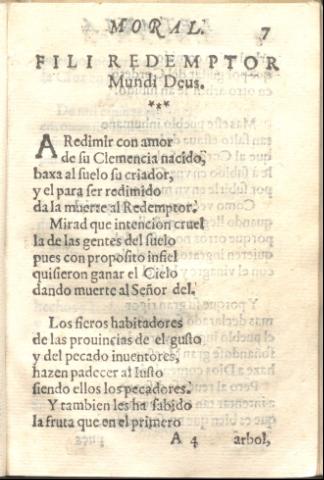 MORAL. 7
FILI REDEMPTOR
Mundi Deus.
***
A Redimir con amor
de su Clemencia nacido,
baxa al suelo su criador,
y el para ser redimido
da la muerte al Redemptor.
Mirad que intencion cruel
la de las gentes del suelo
pues con proposito infiel
quisieron ganar el Cielo
dando muerte al Señor del.
Los fieros habitadores
de las prouincias de el gusto
y del pecado inuentores,
hazen padecer al Iusto
siendo ellos los pecadores.
Y tambien les ha sabido
la fruta que en el primero
A 4 arbol,